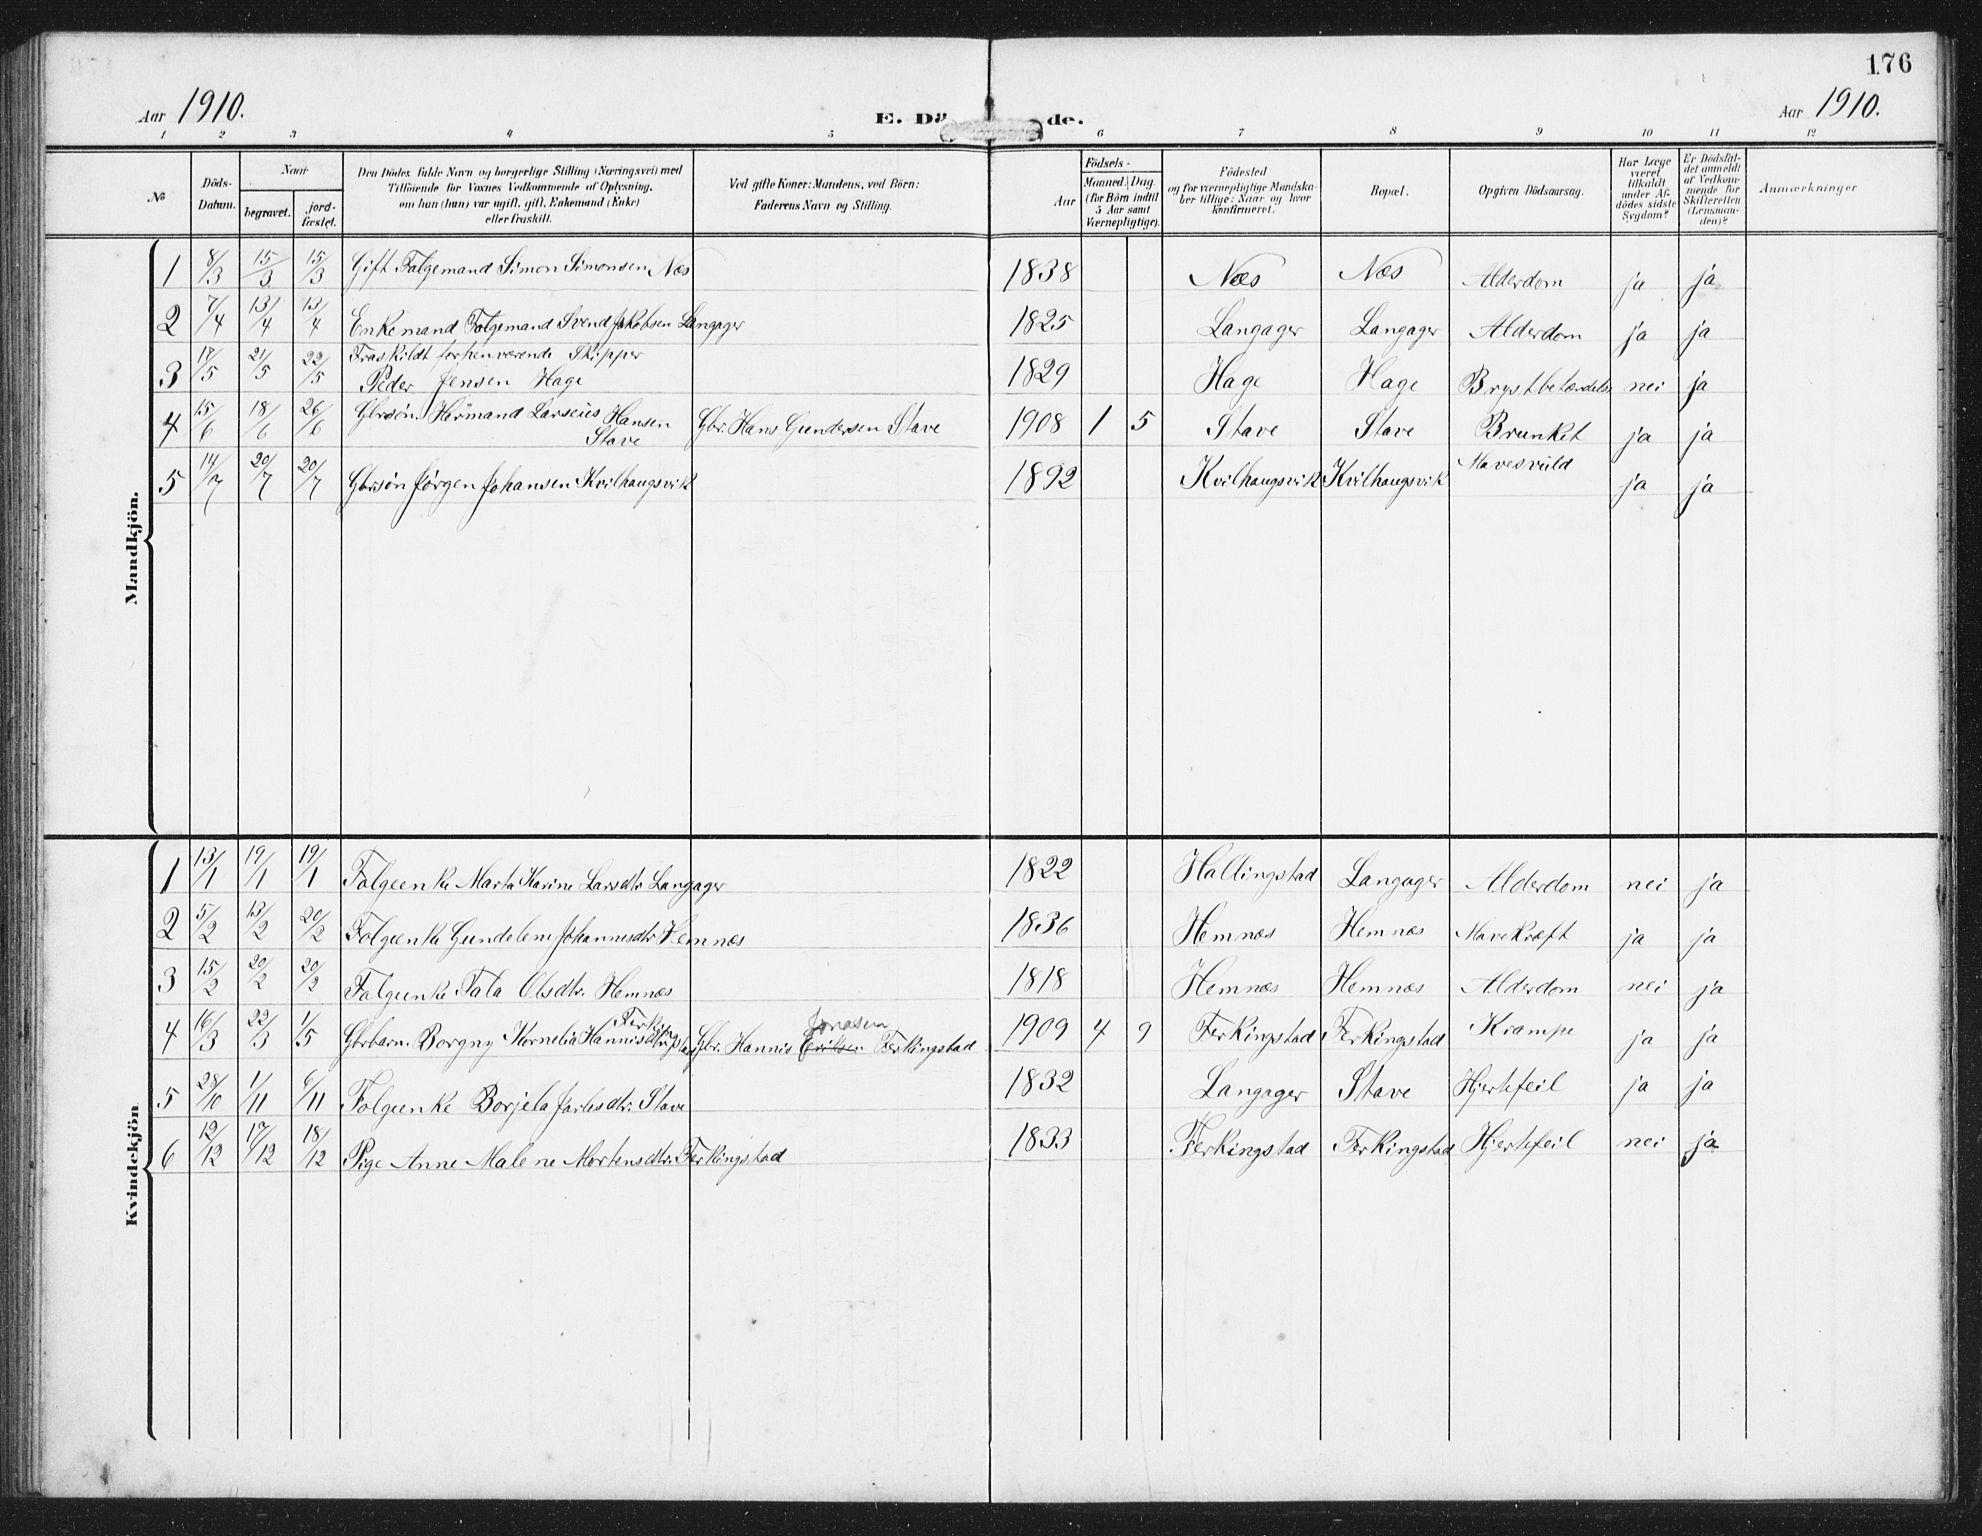 176
Aar 1910.
E. Dö de.
Aar 1910.
1 2 3 4 5 6 7 8 9 10 11 12
No
Döds-Datum.
Naar
begravet.
jord-fæstet.
Den Dödes fulde Navn og borgerlige Stilling (Næringsvei) med
Tilföiende for Voxnes Vedkommende af Oplysning,
om han (hun) var ugift, gift, Enkemand (Enke)
eller fraskilt.
Ved gifte Koner: Mandens, ved Börn:
Faderens Navn og Stilling.
Födsels-
Aar
Maaned. Dag
(for Börn indtil
5 Aar samt
Værnepligtige).
Födested
og for værnepligtige Mandska-
ber tillige: Naar og hvor
konfirmeret.
Bopæl.
Opgiven Dödsaarsag.
Har Læge
været
tilkaldt
under Af-
dödes sidste
Sygdom?
Er Dödsfal-
det anmeldt
af Vedkom-
mende for
Skifteretten
(Lensman-
den)?
Anmærkninger
Mandkjön.
1 8/3 15/3 15/3 Gift Folgemand Simon Simonsen Næs 1838 Næs Næs Alderdom ja ja
2 7/4 13/4 13/4 Enkemand Folgemand Svend Jakobsen Langager 1825 Langager Langager Alderdom ja ja
3 17/5 21/5 22/5 Fraskildt forhenværende Skipper
Peder Jensen Hage 1829 Hage Hage nei ja
4 15/6 18/6 26/6 Gbrsøn. Harmand Larseus Hansen
Stave Gbr. Hans Gundersen Stave 1908 1 5 Stave Stave Brunket ja ja
5 14/7 20/7 20/7 Gbrsøn Jørgen Johansen Kvilhaugsvik 1892 Kvilhaugsvik Kvilhaugsvik Mavesvuld ja ja
Kvindekjön
1 13/1 19/1 19/1 Folgeenke Marta Karine Larsdtr Langager 1822 Hallingstad Langager Alderdom nei ja
2 5/2 13/2 20/2 Folgeenke Gundelene Johannesdtr Hemnæs 1836 Hemnæs Hemnæs Mavekræft ja ja
3 15/2 20/2 20/2 Folgeenke Tala Olsdtr. Hemnæs 1818 Hemnæs Hemnæs Alderdom nei ja
Jonasen
4 16/3 22/3 1/5 Gbrbarn. Borgny Kornelia Hannisdtr Ferkingstad Gbr. Hannis Eriksen Ferkingstad 1909 4 9 Ferkingstad Ferkingstad Krampe ja ja
5 28/10 1/11 6/11 Folgeenke Borjela Jarlesdtr. Stave 1832 Langager Stave Hjertefeil ja ja
6 12/12 17/12 18/12 Pige Anne Malene Mortensdtr. Ferkingstad 1833 Ferkingstad Ferkingstad Hjertefeil nei ja